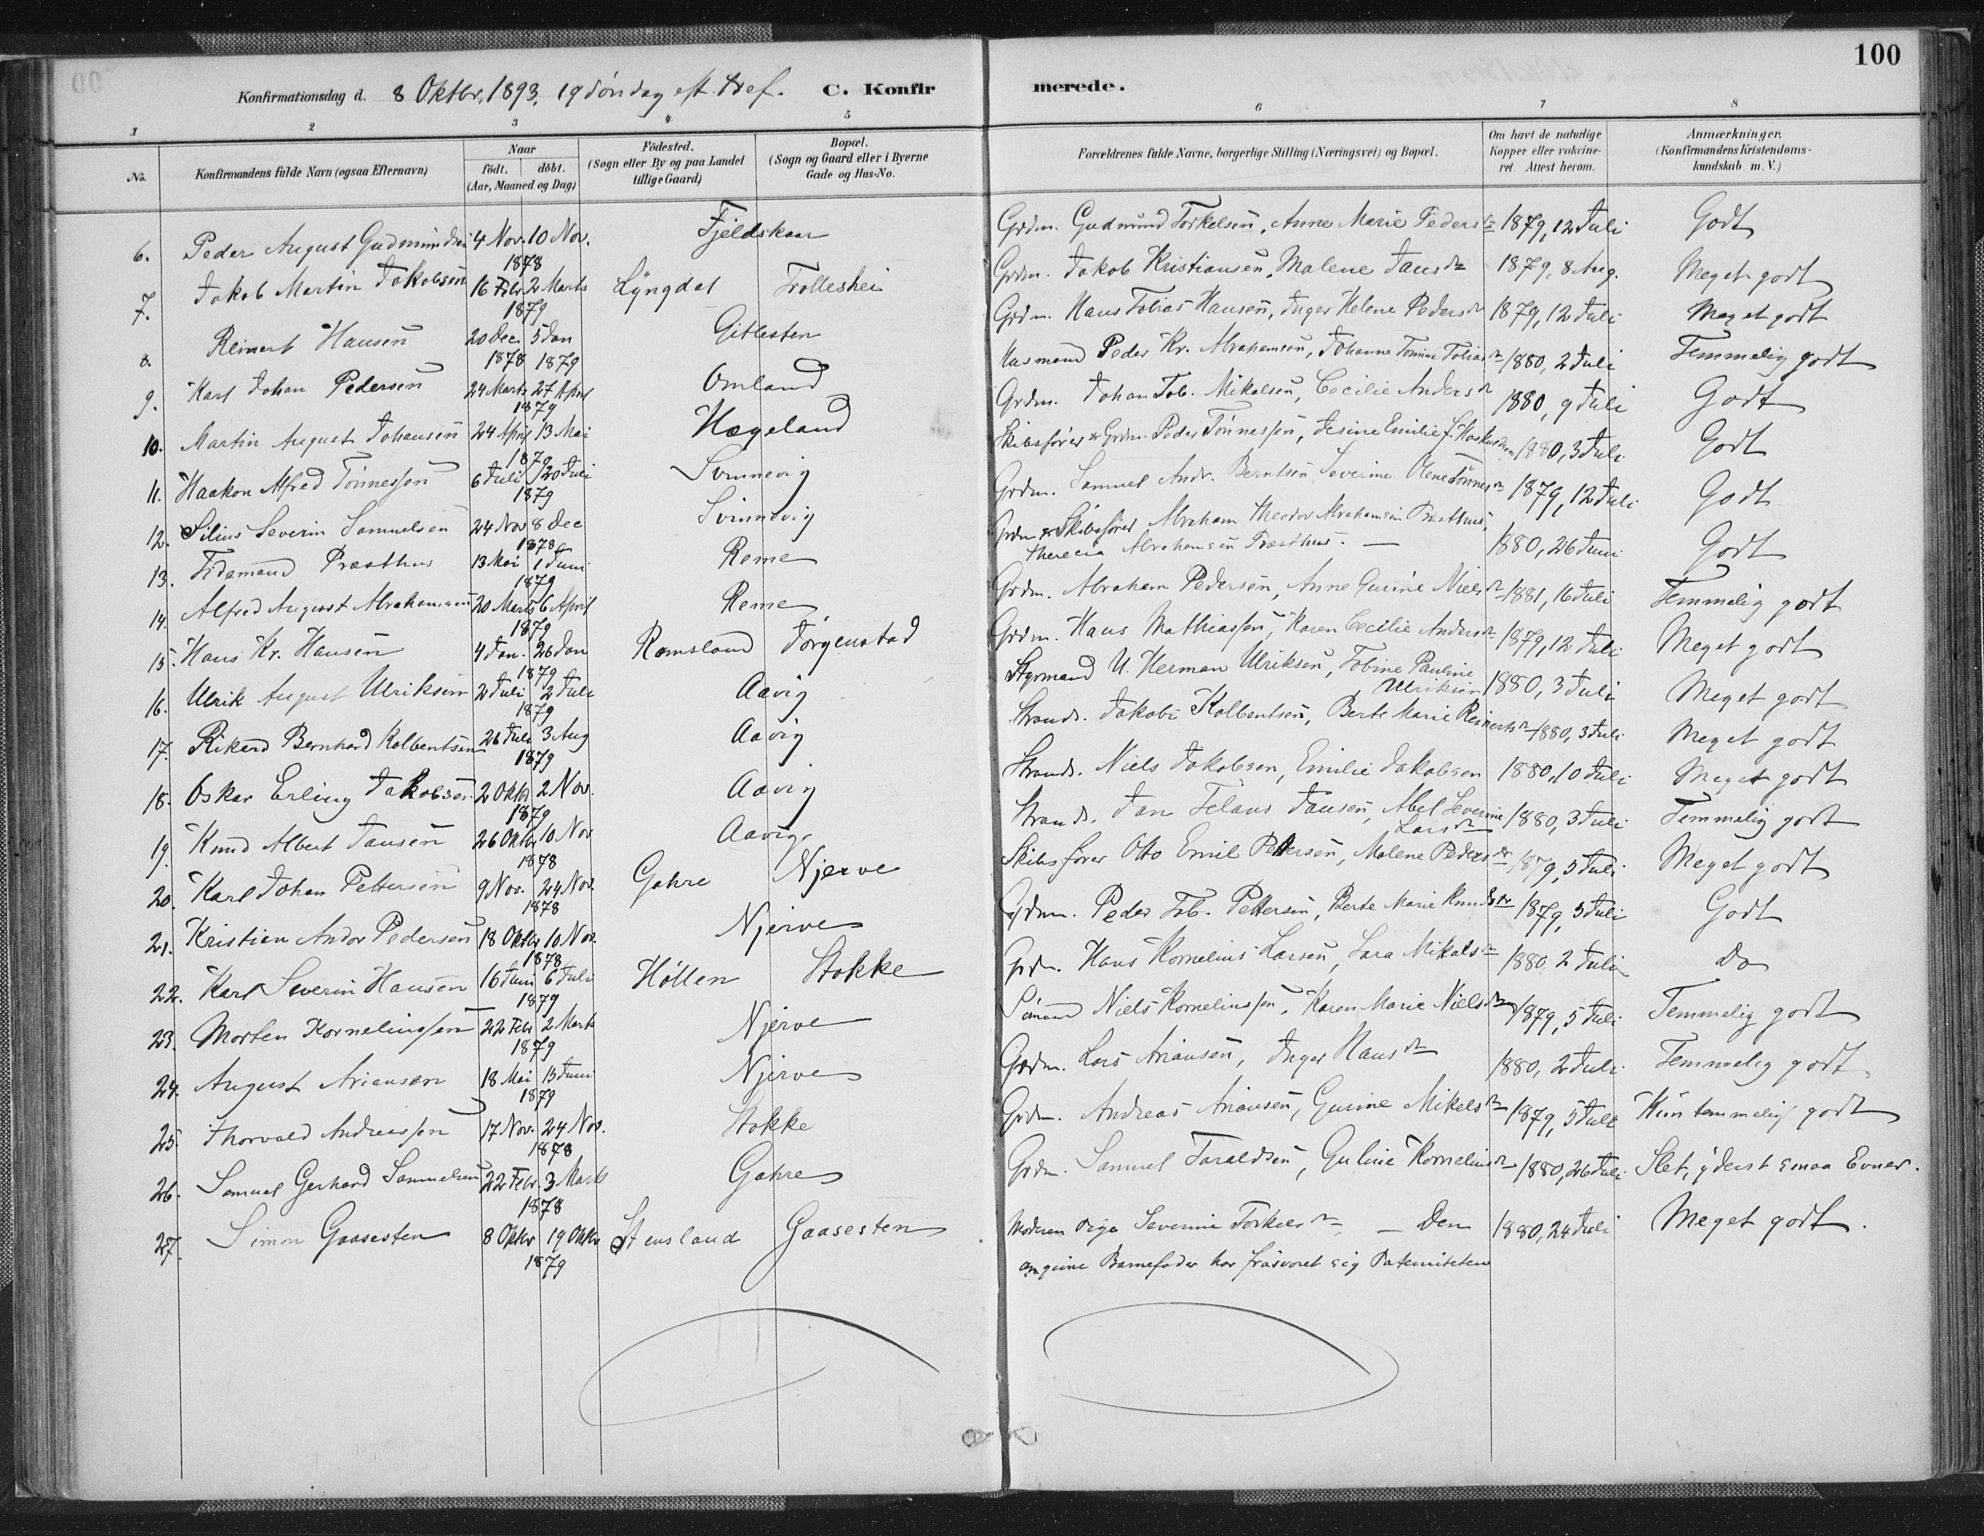 100
Konfirmationsdag d. 8 Oktbr. 1893. 19 Söndag eft. Tref. C. Konfir merede.
1 2 3 4 5 6 7 8
No. Konfirmandens fulde Navn (ogsaa Efternavn) Naar født. døbt. (Aar, Maaned og Dag) Födested. (Sogn eller By og paa Landet tillige Gaard) Bopæl. (Sogn og Gaard eller i Byerne Gade og Hus-No. Forældrenes fulde Navne, borgerlige Stilling (Næringsvei) og Bopæl. Om havt de naturlige Kopper eller vakcineret. Attest herom. Anmærkninger. (Konfirmandens Kristendomskundskab m. V.)
6. Peder August Gudmundsen 4 Nov. 10 Nov. 1878 Fjeldskaar Grdm. Gudmund Torkelsen, Anne Marie Pedersdr 1879, 12 Juli Godt
7. Jakob Martin Jakobsen 16 Febr 2 Marts 1879 Lyngdal Trolleshei Grdm. Jakob Kristiansen, Malene Jansdr 1879, 8 Aug. Meget godt
8. Reinert Hansen 20 Dec. 5 Jan 1878 1879 Gitlesten Grdm. Hans Tobias Hansen, Inger Helene Pedersdr 1879, 12 Juli Meget godt
9. Karl Johan Pedersen 24 Marts 27 April 1879 Omland Husmand Peder Kr. Abrahamsen, Johanne Tomine Tobiasdr 1880, 2 Juli Temmelig godt
10. Martin August Johansen 24 April 13 Mai 1879 Hægeland Grdm. Johan Tob. Mikalsen, Cecilie Andersdr 1880, 9 Juli Godt
11. Haakon Alfred Tönnessen 6 Juli 20 Juli 1879 Svinnevig Skibsfører & Grdm. Peder Tönnessen, Jesine Emilie f. 1880, 3 Juli Godt
12. Silius Severin Samuelsen 24 Nov 8 Dec 1878 Svinnevig Grdm. Samuel Andr. Berntsen, Severine Olene Tönnesdr 1879, 12 Juli Godt
13. Tidemand Præsthus 13 Mai 1 Juni 1879 Reme Grdm & Skibsfører Abraham Theodor Abrahamsen Præsthus,
Therecia Abrahamsen Præsthus. — 1880, 26 Juni Godt
14. Alfred August Abrahamsen 20 Marts 6 April 1879 Reme Grdm. Abraham Pedersen, Anne Gurine Nielsdr 1881, 16 Juli Temmelig godt
15. Hans Kr. Hansen 4 Jan. 26 Jan 1879 Ramsland Jörgenstad Grdm. Hans Mathiassen, Karen Cecilie Andersdr 1879, 12 Juli Meget godt
16. Ulrik August Ulriksen 2 Juli 2 Juli 1879 Aavig Styrmand U. Herman Ulriksen, Tobine Pauline Ulriksen 1880, 3 Juli Meget godt
17. Rikard Bernhard Kolbentsen 26 Juli 3 Aug 1879 Aavig Strands. Jakob Kolbentsen, Berte Marie Reinertsdr 1880, 3 Juli Meget godt
18. Oskar Erling Jakobsen 2 Oktbr 2 Nov. 1879 Aavig Strands. Niels Jakobsen, Emilie Jakobsen 1880, 10 Juli Meget godt
19. Knud Albert Jansen 26 Oktbr 10 Nov 1878 Aavig Strands. Jan Jansen, Abel Severine Larsdr 1880, 3 Juli Temmelig godt
20. Karl Johan Pettersen 9 Nov. 24 Nov. 1878 Gahre Njerve Skibsfører Otto Emil Pettersen, Malene Pedersdr 1879, 5 Juli Meget godt
21. Kristian Andor Pedersen 18 Oktbr 10 Nov. 1878 Njerve Grdm. Peder Tob. Pettersen, Berte Marie Knudsdr 1879, 5 Juli Godt
22. Karl Severin Hansen 16 Juni 6 Juli 1879 Höllen Stokke Grdm. Hans Kornelius Larsen, Sara Mikalsdr 1880, 2 Juli Do
23. Morten Korneliussen 22 Febr 2 Marts 1879 Njerve Sömand Niels Korneliussen, Karen Marie Nielsdr 1879, 5 Juli Temmelig godt
24. August Ariansen 18 Mai 15 Juni 1879 Njerve Grdm. Lars Ariansen, Inger Hansdr 1880, 2 Juli Temmelig godt
25 Thorvald Andreassen 17 Nov. 24 Nov. 1878 Stokke Grdm. Andreas Ariansen, Gurine Mikelsdr 1879, 5 Juli Kun temmelig godt
26. Samuel Gerhard Samuelsen 22 Febr. 3 Marts 1878 Gahre Grdm. Samuel Taraldsen, Guline Korneliusdr 1880, 26 Juli Slet, yderst smaa Evner.
27. Simon Gaasesten 8 Oktbr 19 Oktbr 1879 Stensland Gaasesten Moderen Pige Severine Torkelsdr — Den 1880, 24 Juli Meget godt.
angivne Barnefader har frasvoret sig Paterniteten